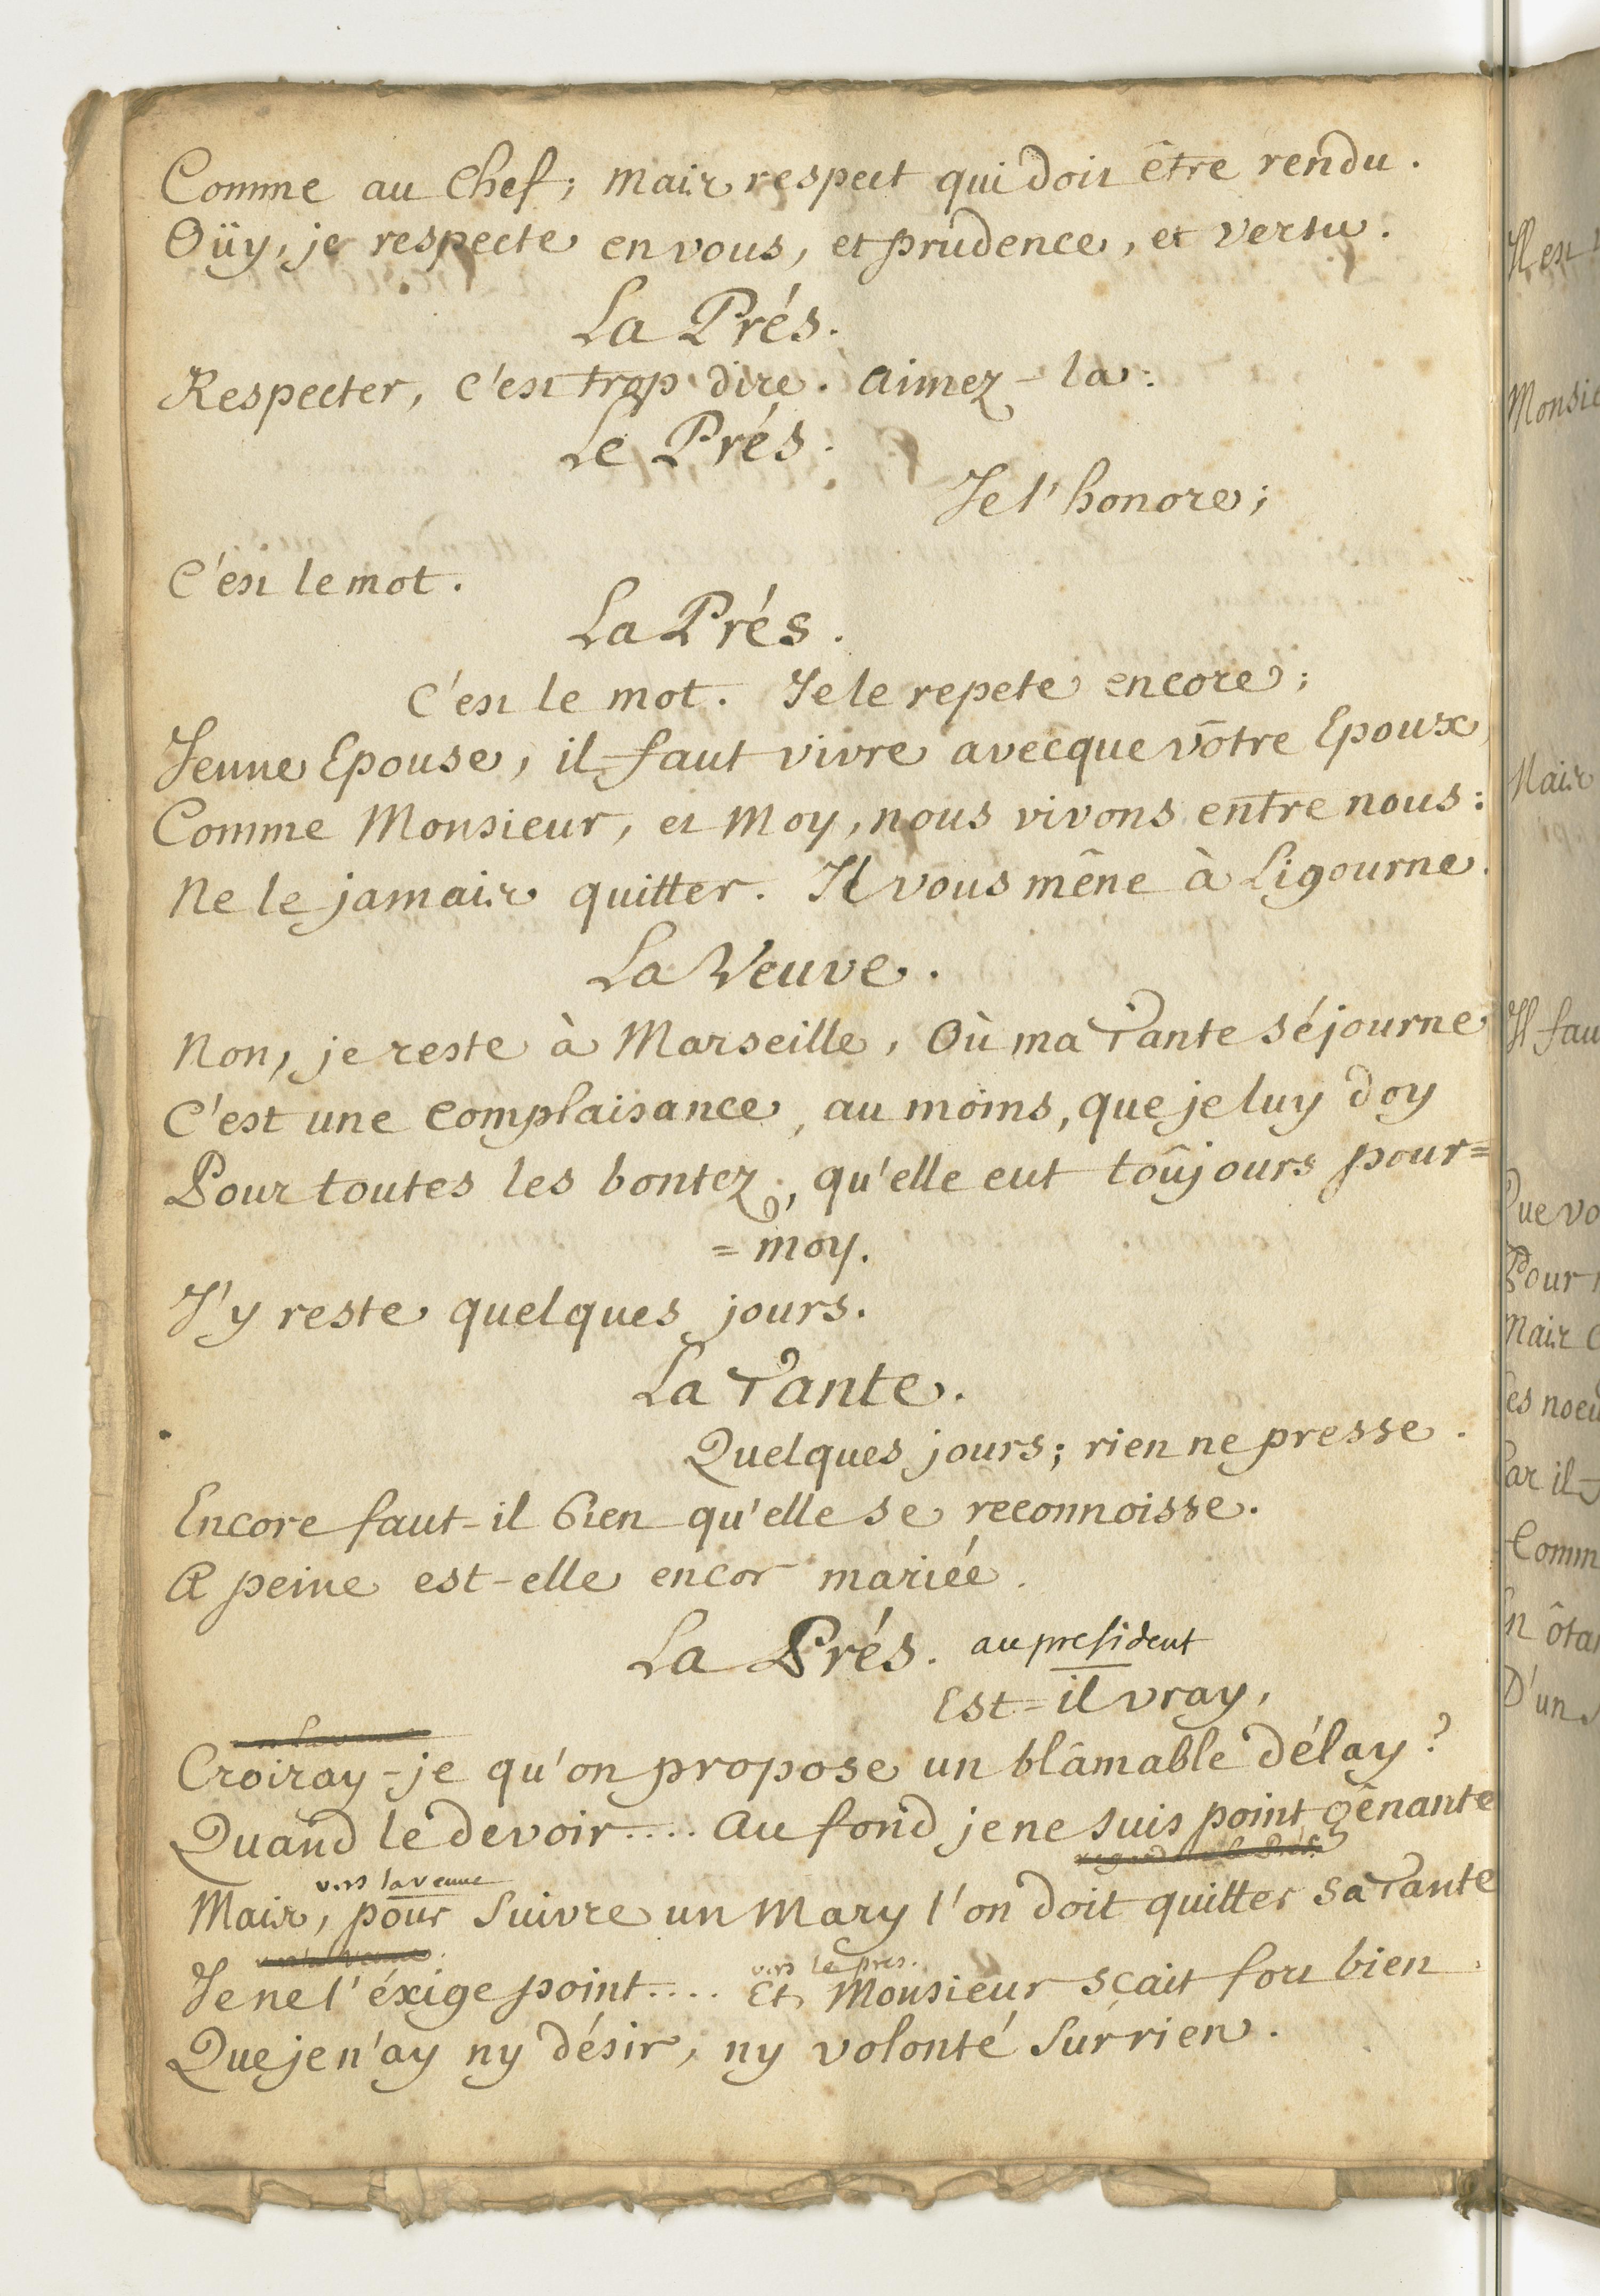 Comme au Chef; mais respect qui doit être rendu.
Oüy, je respecte en vous, et prudence, et vertu.
La Prés.
Respecter, c'est trop dire. aimez-la.
Le Prés.
Je l'honore;
C'est le mot.
La Prés.
C'est le mot. Je le repete encore;
Jeune Epouse, il faut vivre avecque vôtre Epoux,
Comme Monsieur, et Moy, nous vivons entre nous:
Ne le jamais quitter. Il vous mêne à Ligourne.
La Veuve.
Non, je reste à Marseille, Où ma Tante séjourne
C'est une complaisance, au moins, que je luy doy
Pour toutes les bontez, qu'elle eut toûjours pour=
=moy.
J'y reste quelques jours.
La Tante.
Quelques jours; rien ne presse.
Encore faut-il bien qu'elle se reconnoisse.
A peine est-elle encor mariée.
La Prés. au president
Est=il vray,
Croiray-je qu'on propose un blâmable délay?
Quand le devoir.... au fond je ne suis point gênante
vers la veuve
Mais, pour suivre un Mary l'on doit quitter sa Tante
vers le pres.
Je ne l'éxige point.... Et Monsieur sçait fort bien
Que je n'ay ny désir, ny volonté sur rien.
Il est
Monsie
Mais
Il fau
Que vo
Pour
Mais
es noeu
Car il
Comm
En ôta
D'un